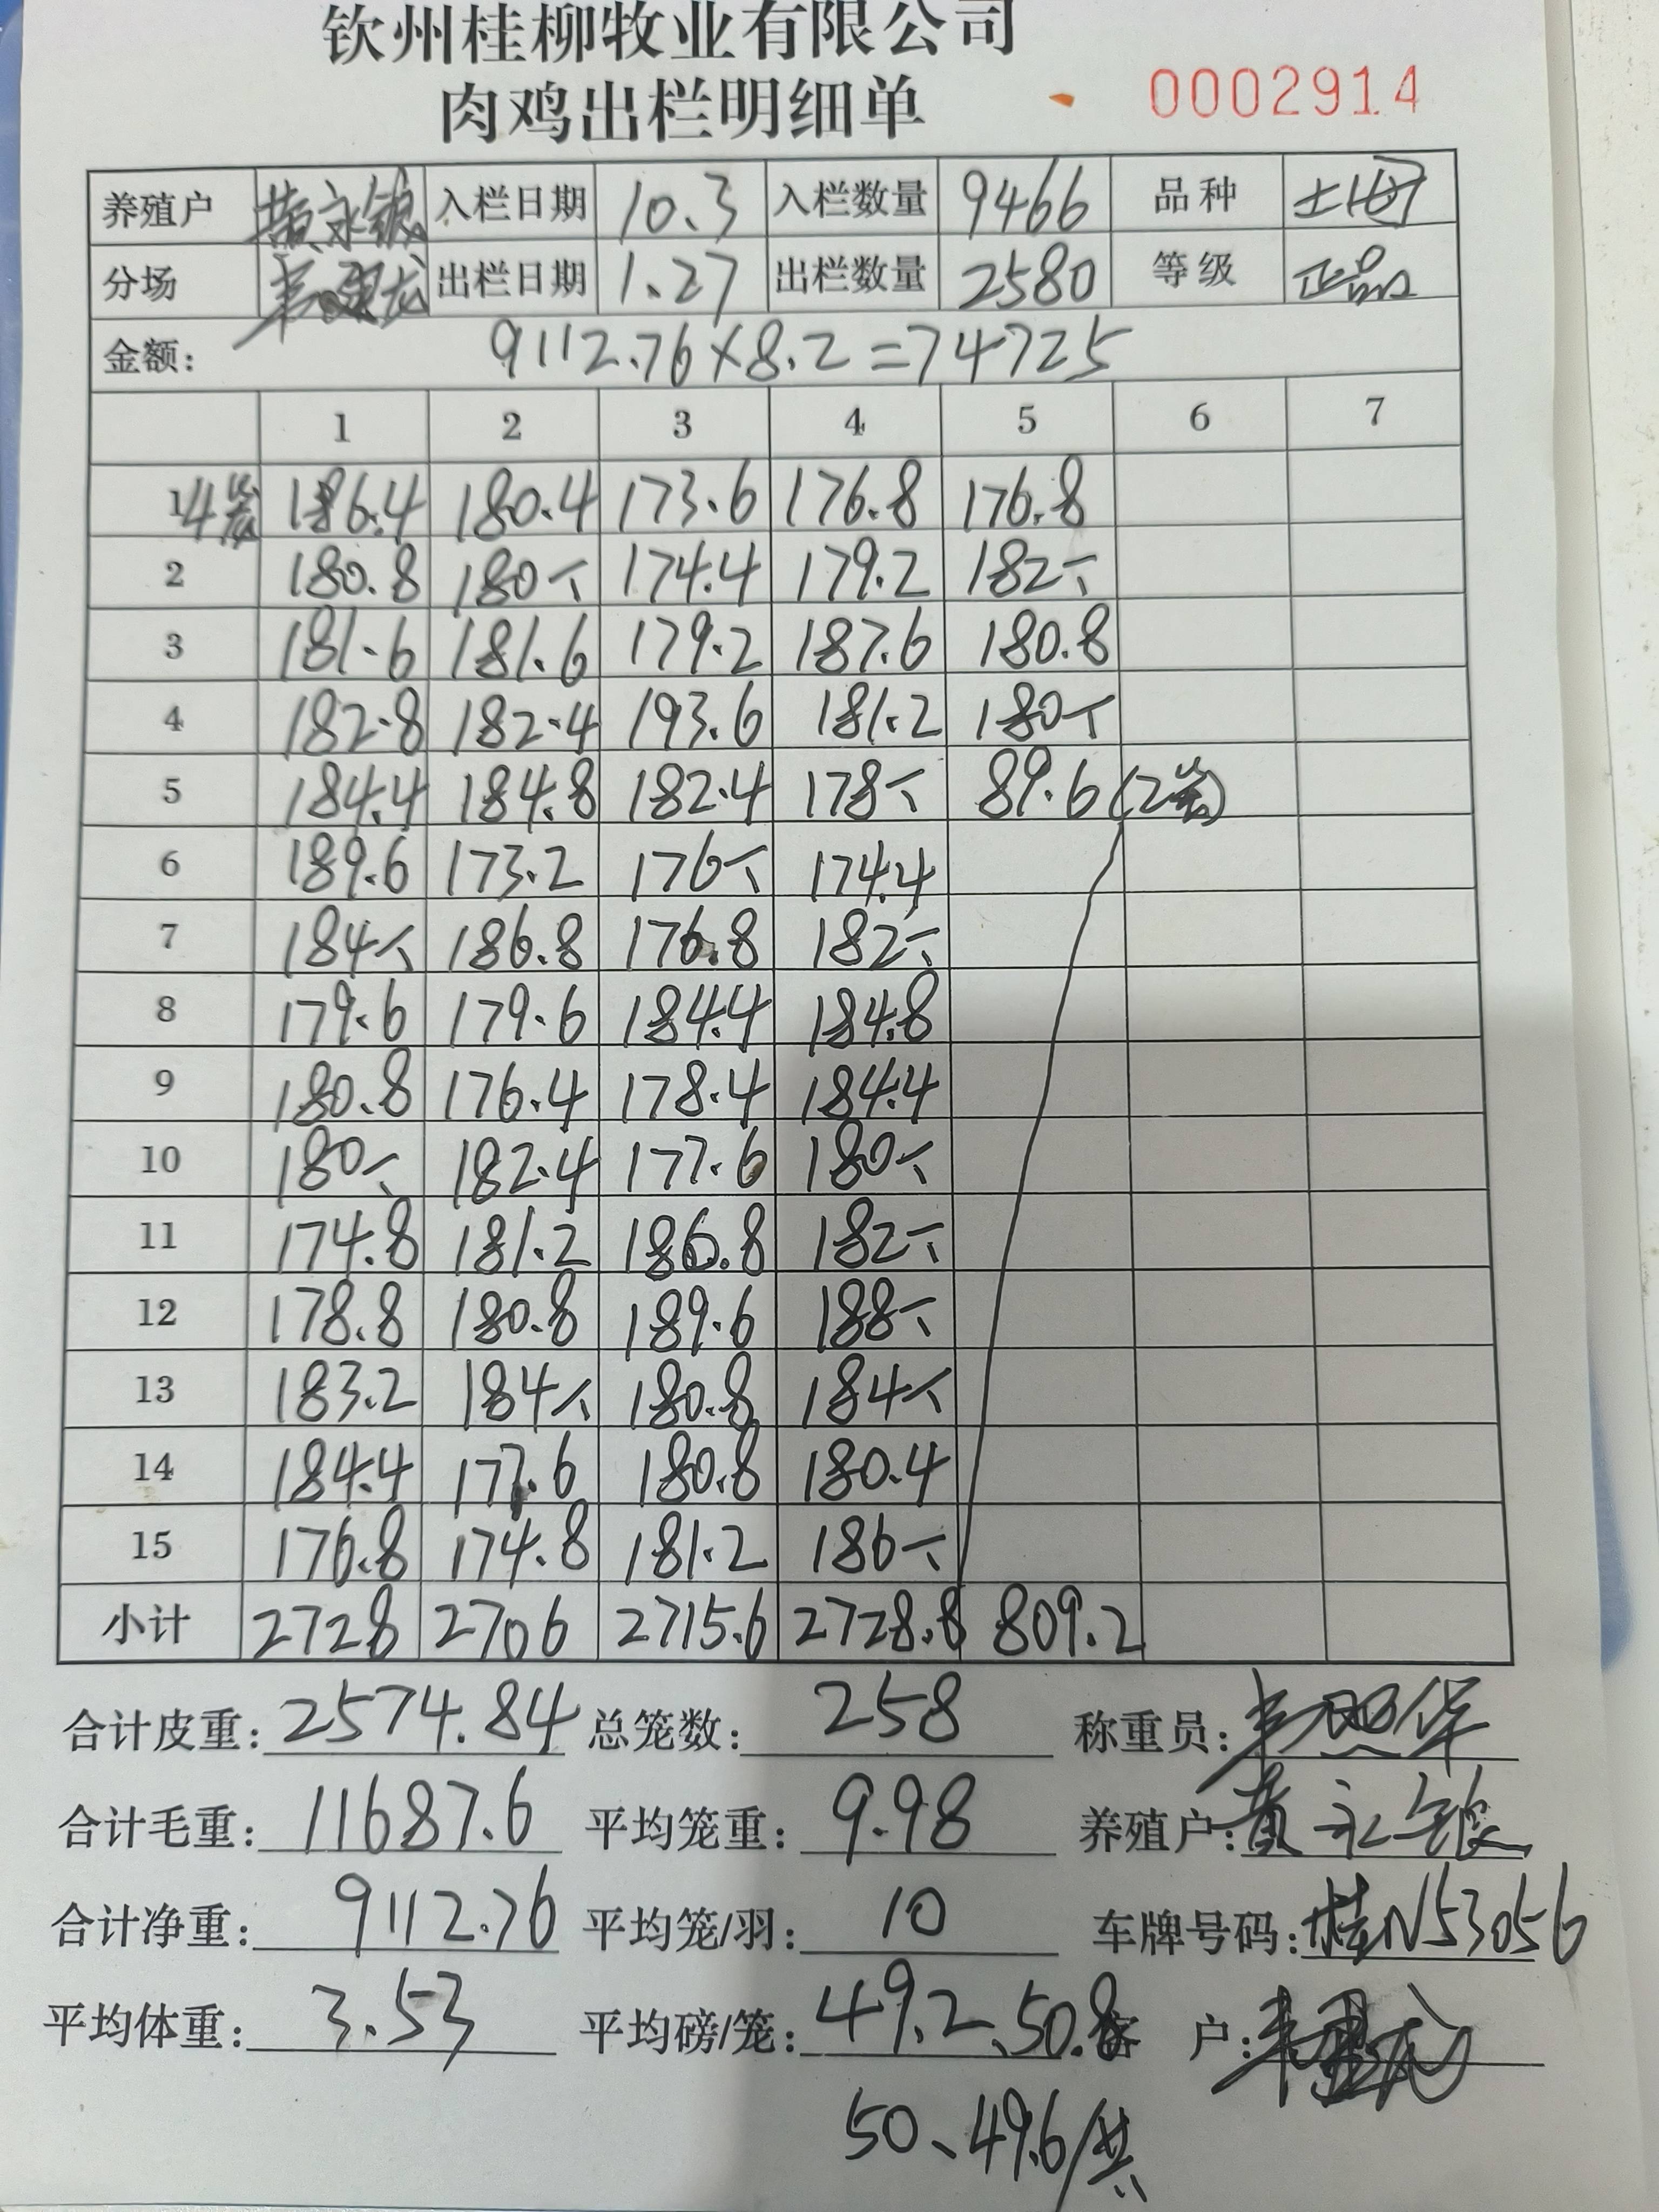 钦州桂柳牧业有限公司
肉鸡出栏明细单 0002914
养殖户 黄永银 入栏日期 10.3 入栏数量 9466 品种 土
分场 出栏日期 1.27 出栏数量 2580 等级 正品
金额: 9112.76×8.2=74725
1 2 3 4 5 6 7
1 4笼 186.4 180.4 173.6 176.8 176.8
2 180.8 180 174.4 179.2 182
3 181.6 181.6 179.2 187.6 180.8
4 182.8 182.4 193.6 181.2 180
5 184.4 184.8 182.4 178 89.6 (2笼)
6 189.6 173.2 176 174.4
7 184 186.8 176.8 182
8 179.6 179.6 184.4 184.8
9 180.8 176.4 178.4 184.4
10 180 182.4 177.6 180
11 174.8 181.2 186.8 182
12 178.8 180.8 189.6 188
13 183.2 184 180.8 184
14 184.4 177.6 180.8 180.4
15 176.8 174.8 181.2 186
小计 2728 2706 2715.6 2728.8 809.2
合计皮重: 2574.84 总笼数: 258 称重员: 韦照华
合计毛重: 11687.6 平均笼重: 9.98 养殖户: 黄永银
合计净重: 9112.76 平均笼/羽: 10 车牌号码: 桂N53056
平均体重: 3.53 平均磅/笼: 49.2、50.8 客 户:
50、49.6/共